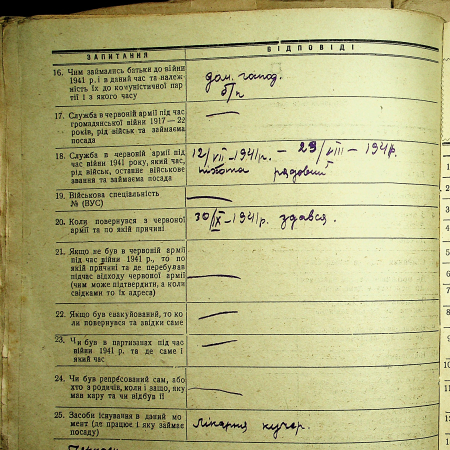 ЗАПИТАННЯ
ВІДПОВІДІ
16. Чим займались батьки до війни
1941 р. і в даний час та належ
ність їх до комуністичної пар
тії і з якого часу
дом. господ.
б/п
17. Служба в червоній армії під час
громадянської війни 1917—22
років, рід військ та займаєма
посада
—
18. Служба в червоній армії під
час війни 1941 року, який час,
рід військ, останнє військове
звання та займаєма посада
12/VII–1941р. – 29/VIII–1941р.
піхота рядовий
19. Військова спеціальність
№ (ВУС)
—
20. Коли повернувся з червоної
армії та по якій причині
30/IX–1941р. здався.
21. Якщо не був в червоній армії
під час війни 1941 р., то по
якій причині та де перебував
підчас відходу червоної армії
(чим може підтвердити, а коли
свідками то їх адреса)
—
22. Якщо був евакуйований, то ко
ли повернувся та звідки саме
—
23. Чи був в партизанах під час
війни 1941 р. та де саме і
який час
—
24. Чи був репресований сам, або
хто з родичів, коли і защо, яку
мав кару та чи відбув її
—
25. Засоби існування в даний мо
мент (де працює і яку займає
посаду)
лікарня кучер.